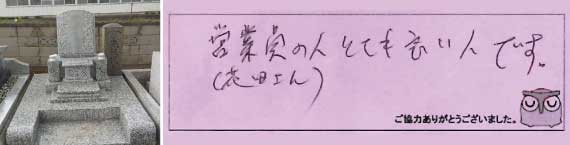 営業員の人とても良い人です。
(花田さん)
ご協力ありがとうございました。